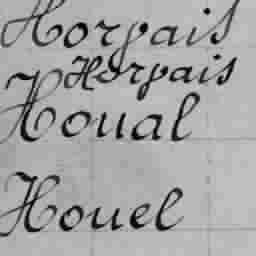 Horpais
Horpais
Houal
Houel